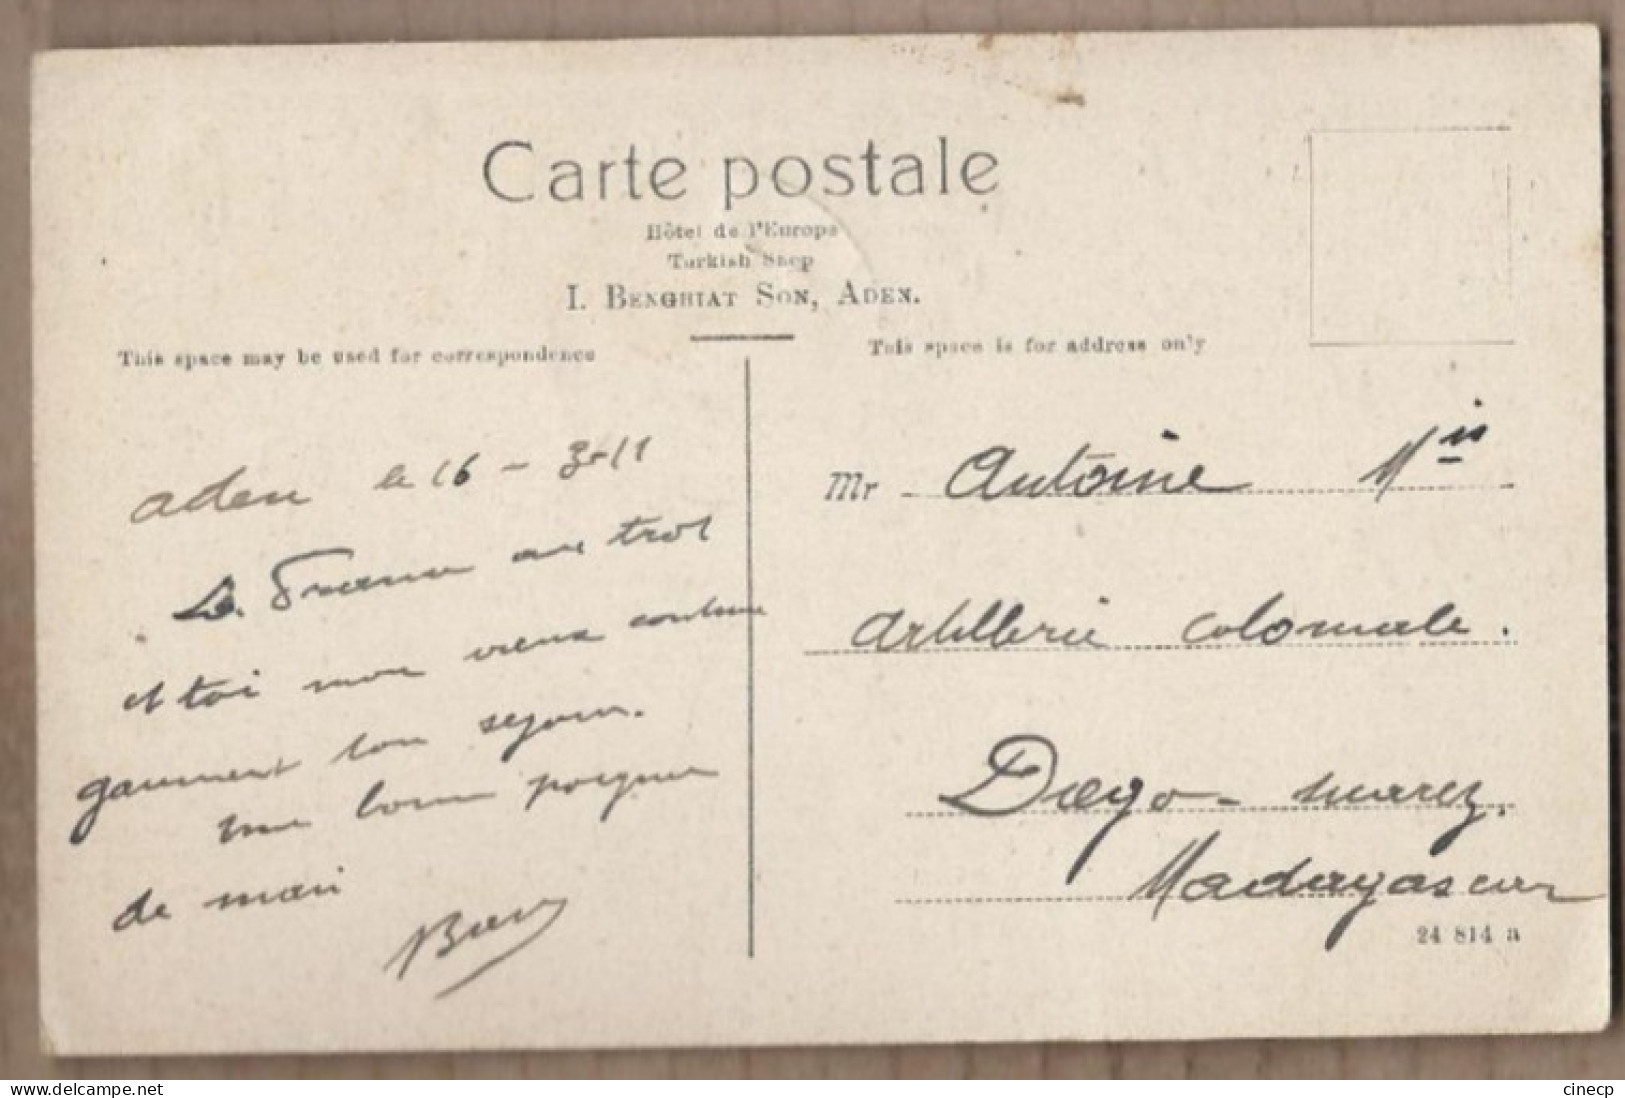 Carte postale
Hôtel de l'Europe
Turkish Shop
I. Benghiat Son, Aden.
This space may be used for correspondence
This space is for address only
Aden le 16 - 3-11
La France au trot
et toi mon vieux continue
gaiement ton séjour.
une bonne poignée
de main
Mr Antoine Mis
Artillerie Coloniale.
Diego-Suarez.
Madagascar
24 814 a
www.delcampe.net
cinecp